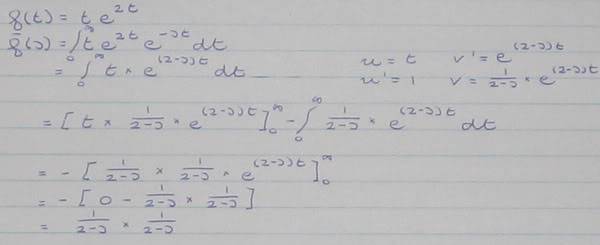 g(t) = t e^{2t}
ḡ(s) = ∫_0^∞ t e^{2t} e^{-st} dt
= ∫_0^∞ t × e^{(2-s)t} dt
u = t v' = e^{(2-s)t}
u' = 1 v = \frac{1}{2-s} × e^{(2-s)t}
= [ t × \frac{1}{2-s} × e^{(2-s)t} ]_0^∞ - ∫_0^∞ \frac{1}{2-s} × e^{(2-s)t} dt
= - [ \frac{1}{2-s} × \frac{1}{2-s} × e^{(2-s)t} ]_0^∞
= - [ 0 - \frac{1}{2-s} × \frac{1}{2-s} ]
= \frac{1}{2-s} × \frac{1}{2-s}